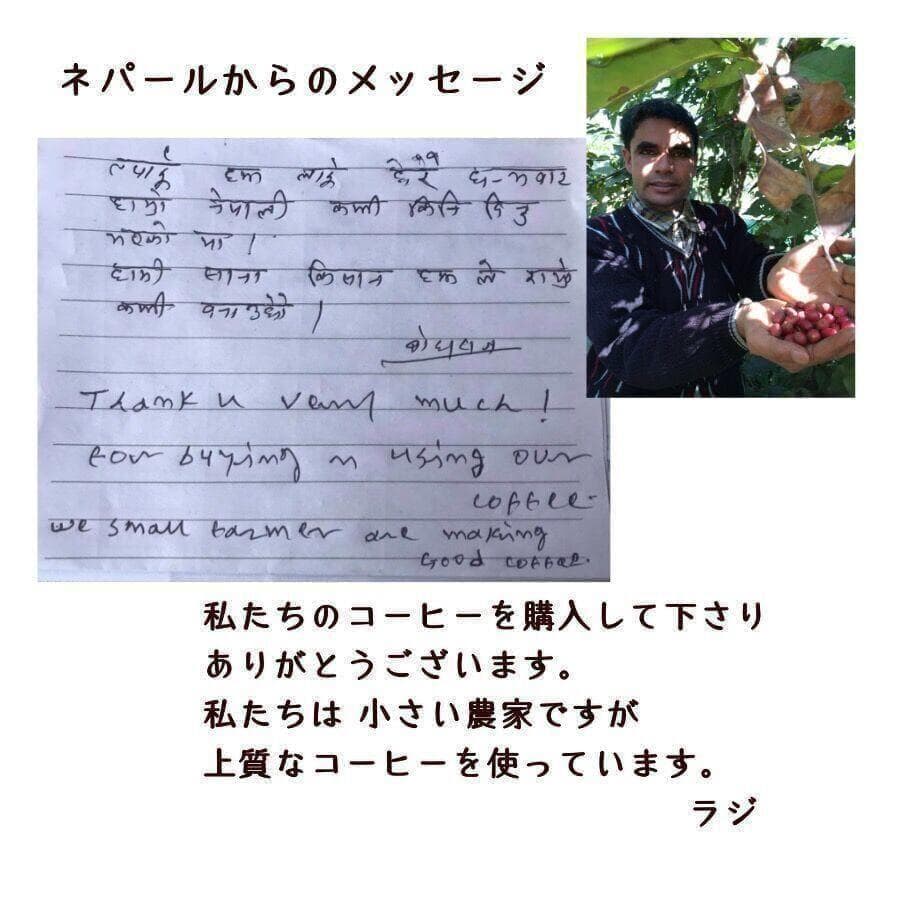 ネパールからのメッセージ
हरू लाई धेरै
हाम्रो नेपाली कफी किनि दिनु
भएको मा ।
हामी साना किसान हरू ले राम्रो
कफी बनाउछौ ।
Thank u very much!
for buying n using our
coffee.
we small farmer are making
Good coffee.
私たちのコーヒーを購入して下さり
ありがとうございます。
私たちは 小さい農家ですが
上質なコーヒーを使っています。
ラジ